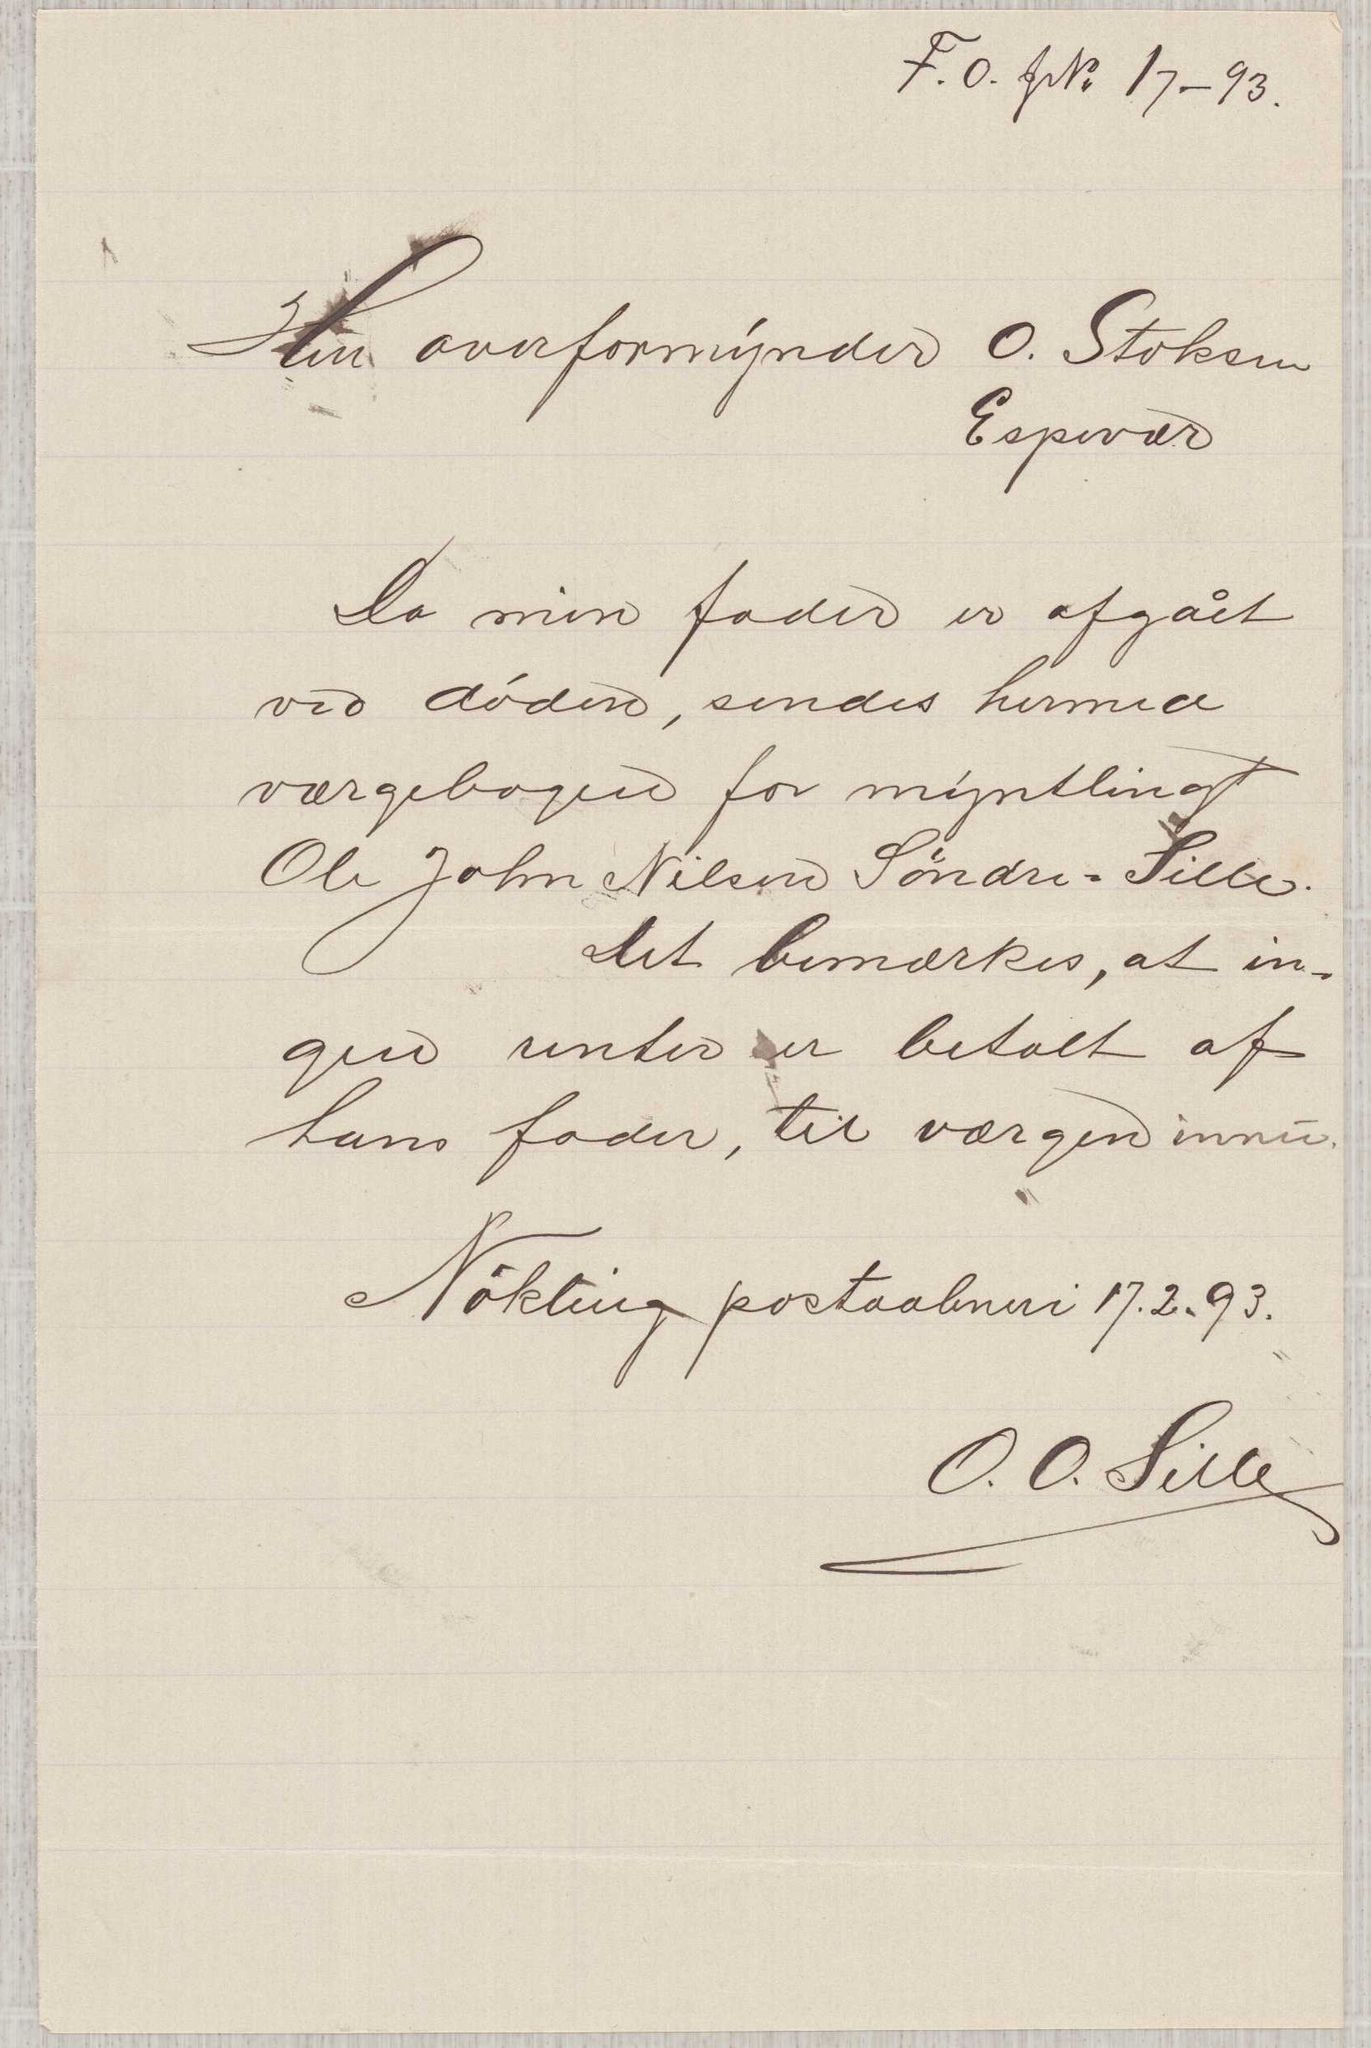 F. O. J№ 17-93.
Herr overformynder O. Stoksen
Espevær
Da min fader er afgået
ved döden, sendes hermed
værgebogen for myntlingt
Ole John Nilsen Söndre-Sille.
Det bemærkes, at in-
gen renter er betalt af
hans fader, til værgen innu.
Nökling postaabneri 17.2.93.
O. O. Sille